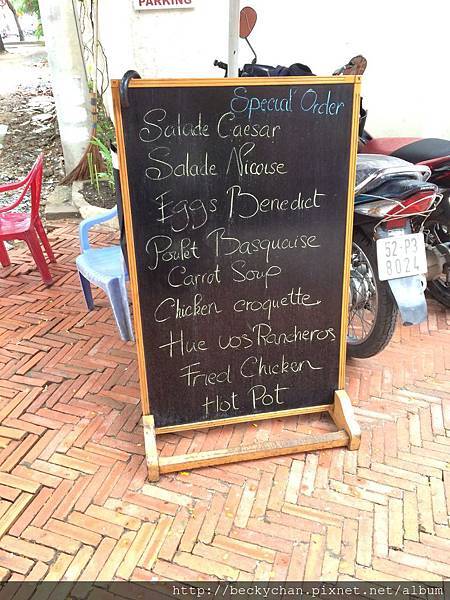 PARKING
Special Order
Salade Caesar
Salade Nicoise
Eggs Benedict
Poulet Basquaise
Carrot Soup
Chicken croquette
Hue vos Rancheros
Fried Chicken
Hot Pot
52-P3
8024
http://beckychan.pixnet.net/album